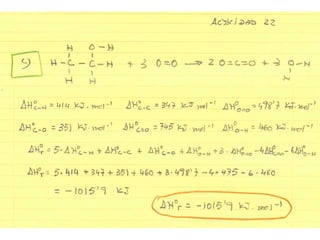 ACTIVIDAD 22
H O-H
5) H-C-C-H + 3 O=O → 2 O=C=O + 3 O-H
H H H
ΔH°C-H = 414 KJ·mol⁻¹ ΔH°C-C = 347 KJ·mol⁻¹ ΔH°O=O = 498'7 KJ·mol⁻¹
ΔH°C-O = 351 KJ·mol⁻¹ ΔH°C=O = 745 KJ·mol⁻¹ ΔH°O-H = 460 KJ·mol⁻¹
ΔH°r = 5·ΔH°C-H + ΔH°C-C + ΔH°C-O + ΔH°O-H + 3·ΔH°O=O - 4ΔH°C=O - 6ΔH°O-H
ΔH°r = 5·414 + 347 + 351 + 460 + 3·498'7 - 4·475 - 6·460
= -1015'9 KJ
ΔH°r = -1015'9 KJ·mol⁻¹